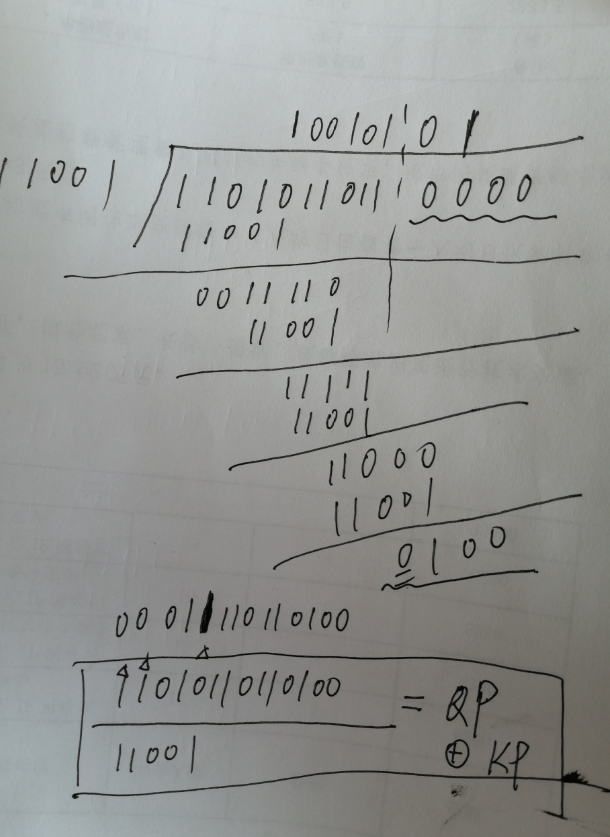 100101 01
11001
1101011011 0000
11001
0011110
11001
11111
11001
11000
11001
0100
00011110110100
11010110110100 = QP
11001 ⊕ KP